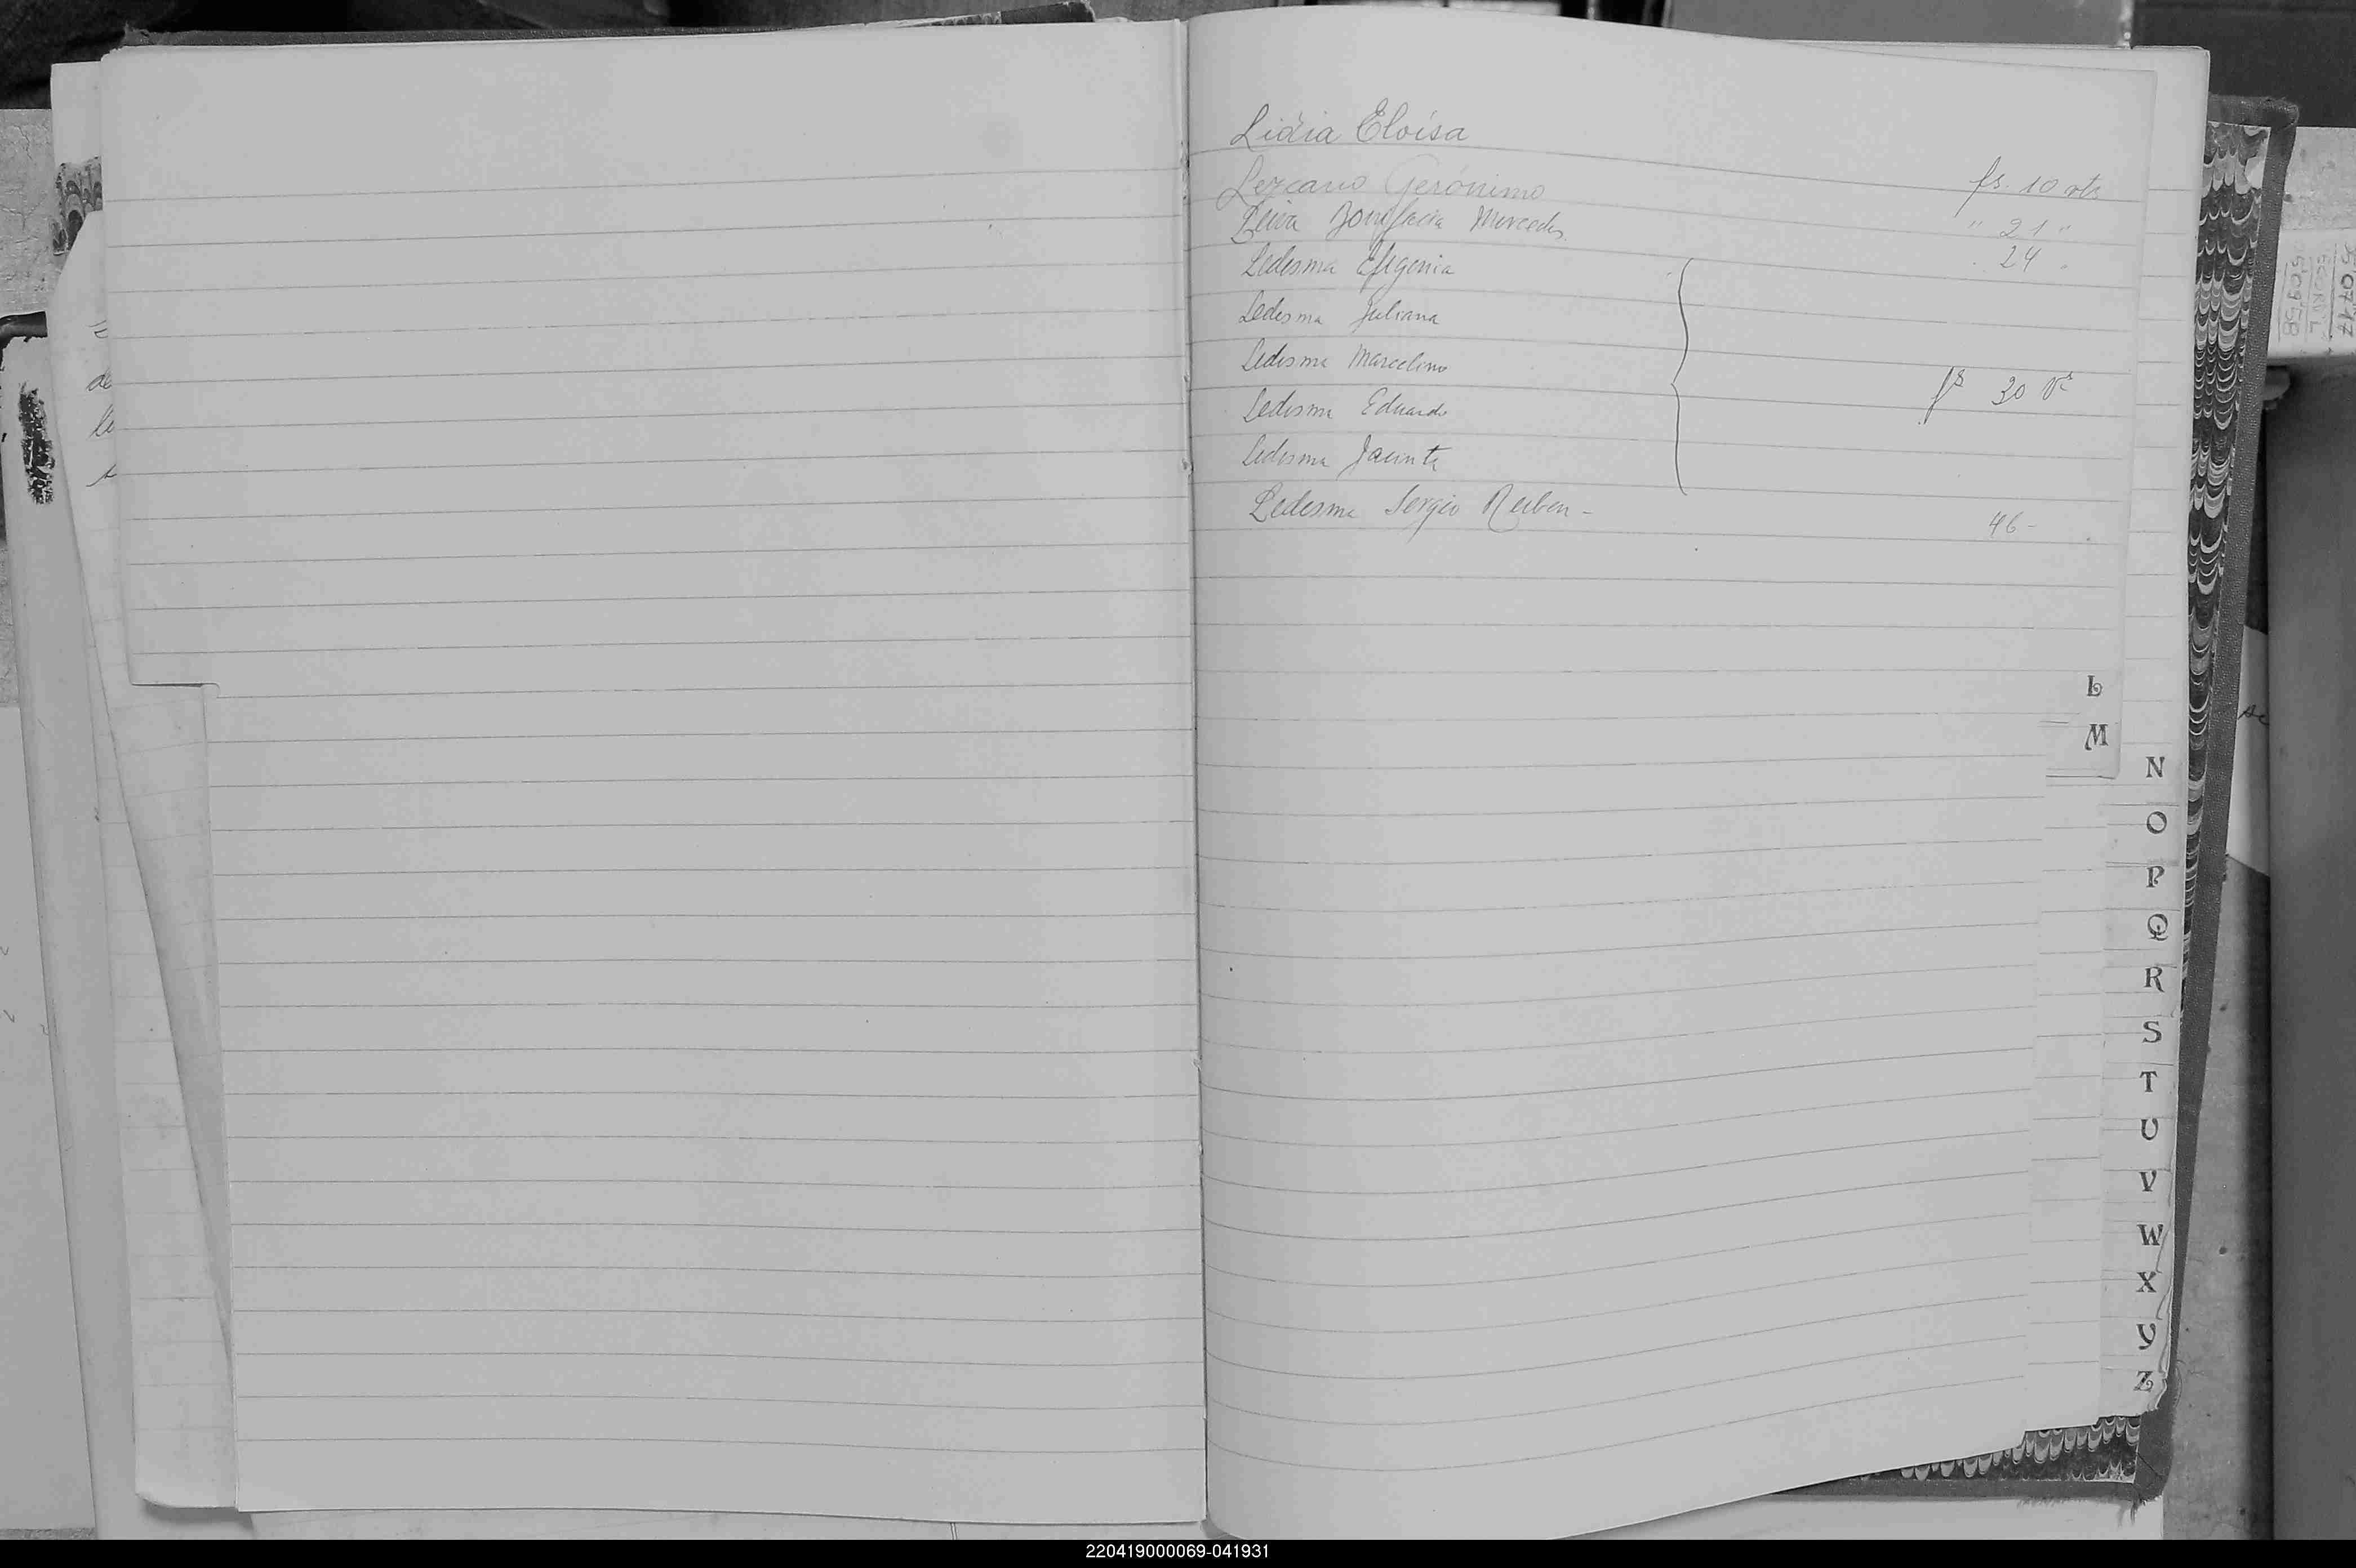 Lidia Eloísa
Lezcano Gerónimo fs. 10 vta
Leiva Bonifacia Mercedes " 21 "
Ledesma Efigenia 24 "
Ledesma Juliana
Ledesma Marcelino
Ledesma Eduardo fs 30 Vta
Ledesma Jacinta
Ledesma Sergio Ruben - 46 -
L
M
N
O
P
Q
R
S
T
U
V
W
X
Y
Z
220419000069-041931